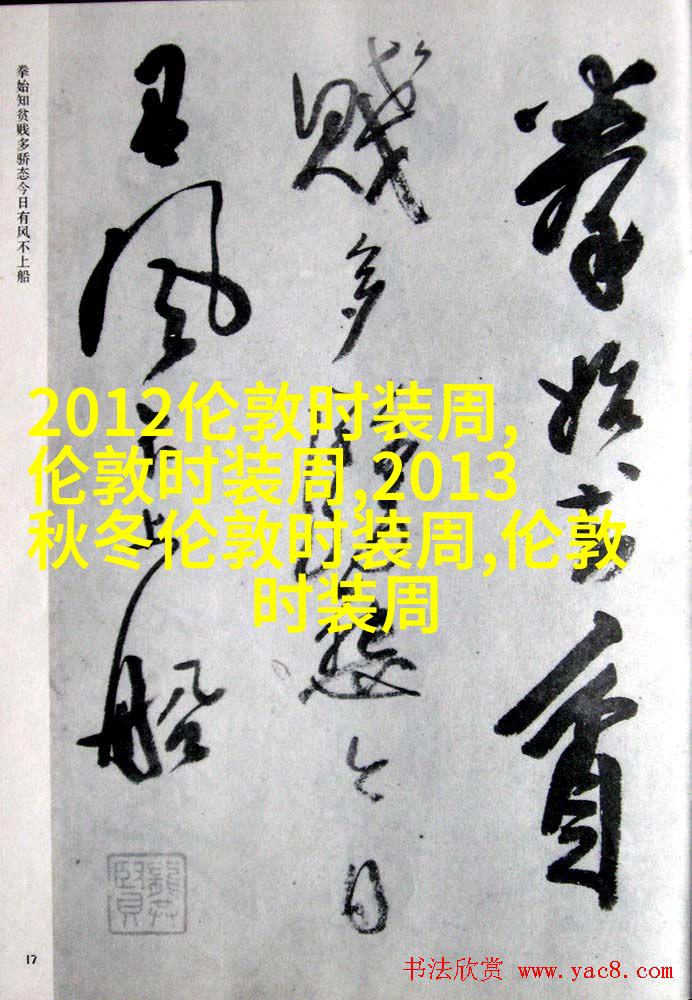 拳始知貧
賤多驕態今日
有風不上船
拳始知贫贱多骄态今日有风不上船
2012伦敦时装周,
伦敦时装周,2013
秋冬伦敦时装周,伦敦
时装周
17
书法欣赏 www.yac8.com